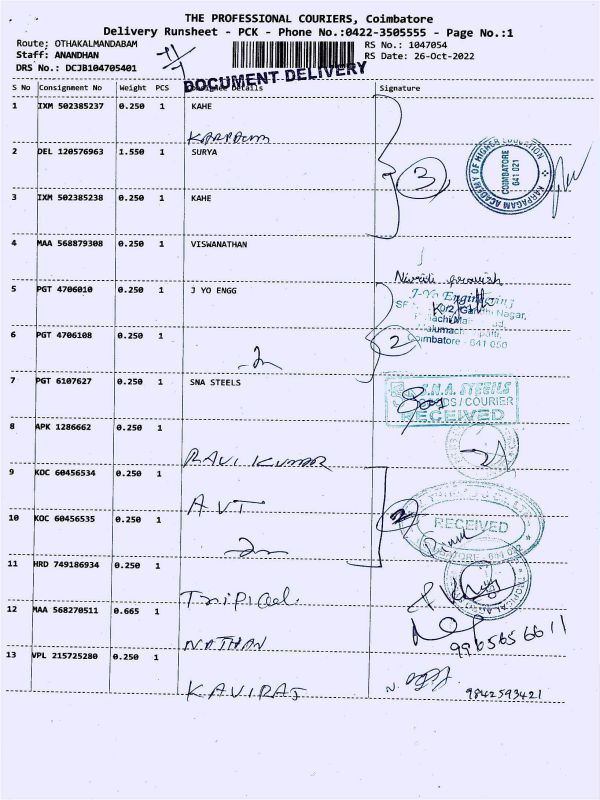 THE PROFESSIONAL COURIERS, Coimbatore
Delivery Runsheet - PCK - Phone No.:0422-3505555 - Page No.:1
Route; OTHAKALMANDABAM RS No.: 1047054
Staff: ANANDHAN RS Date: 26-Oct-2022
DRS No.: DCJB104705401
DOCUMENT DELIVERY
S No Consignment No Weight PCS Details Signature
1 IXM 502385237 0.250 1 KAHE
2 DEL 120576963 1.550 1 SURYA
3
KARPAGAM ACADEMY OF HIGHER EDUCATION
COIMBATORE
641 021
3 IXM 502385238 0.250 1 KAHE
4 MAA 568879308 0.250 1 VISWANATHAN
5 PGT 4706010 0.250 1 J YO ENGG
J-Yo Engineering
Gandhi Nagar,
6 PGT 4706108 0.250 1
2
Coimbatore - 641 050
7 PGT 6107627 0.250 1 SNA STEELS
S.N.A. STEELS
GOODS / COURIER
RECEIVED
8 APK 1286662 0.250 1
RAVI KUMAR
9 KOC 60456534 0.250 1
AVT
10 KOC 60456535 0.250 1
2
RECEIVED
11 HRD 749186934 0.250 1
Tropical
12 MAA 568270511 0.665 1
NATHAN
9965656611
13 VPL 215725280 0.250 1
KAVIRAJ
9842593421